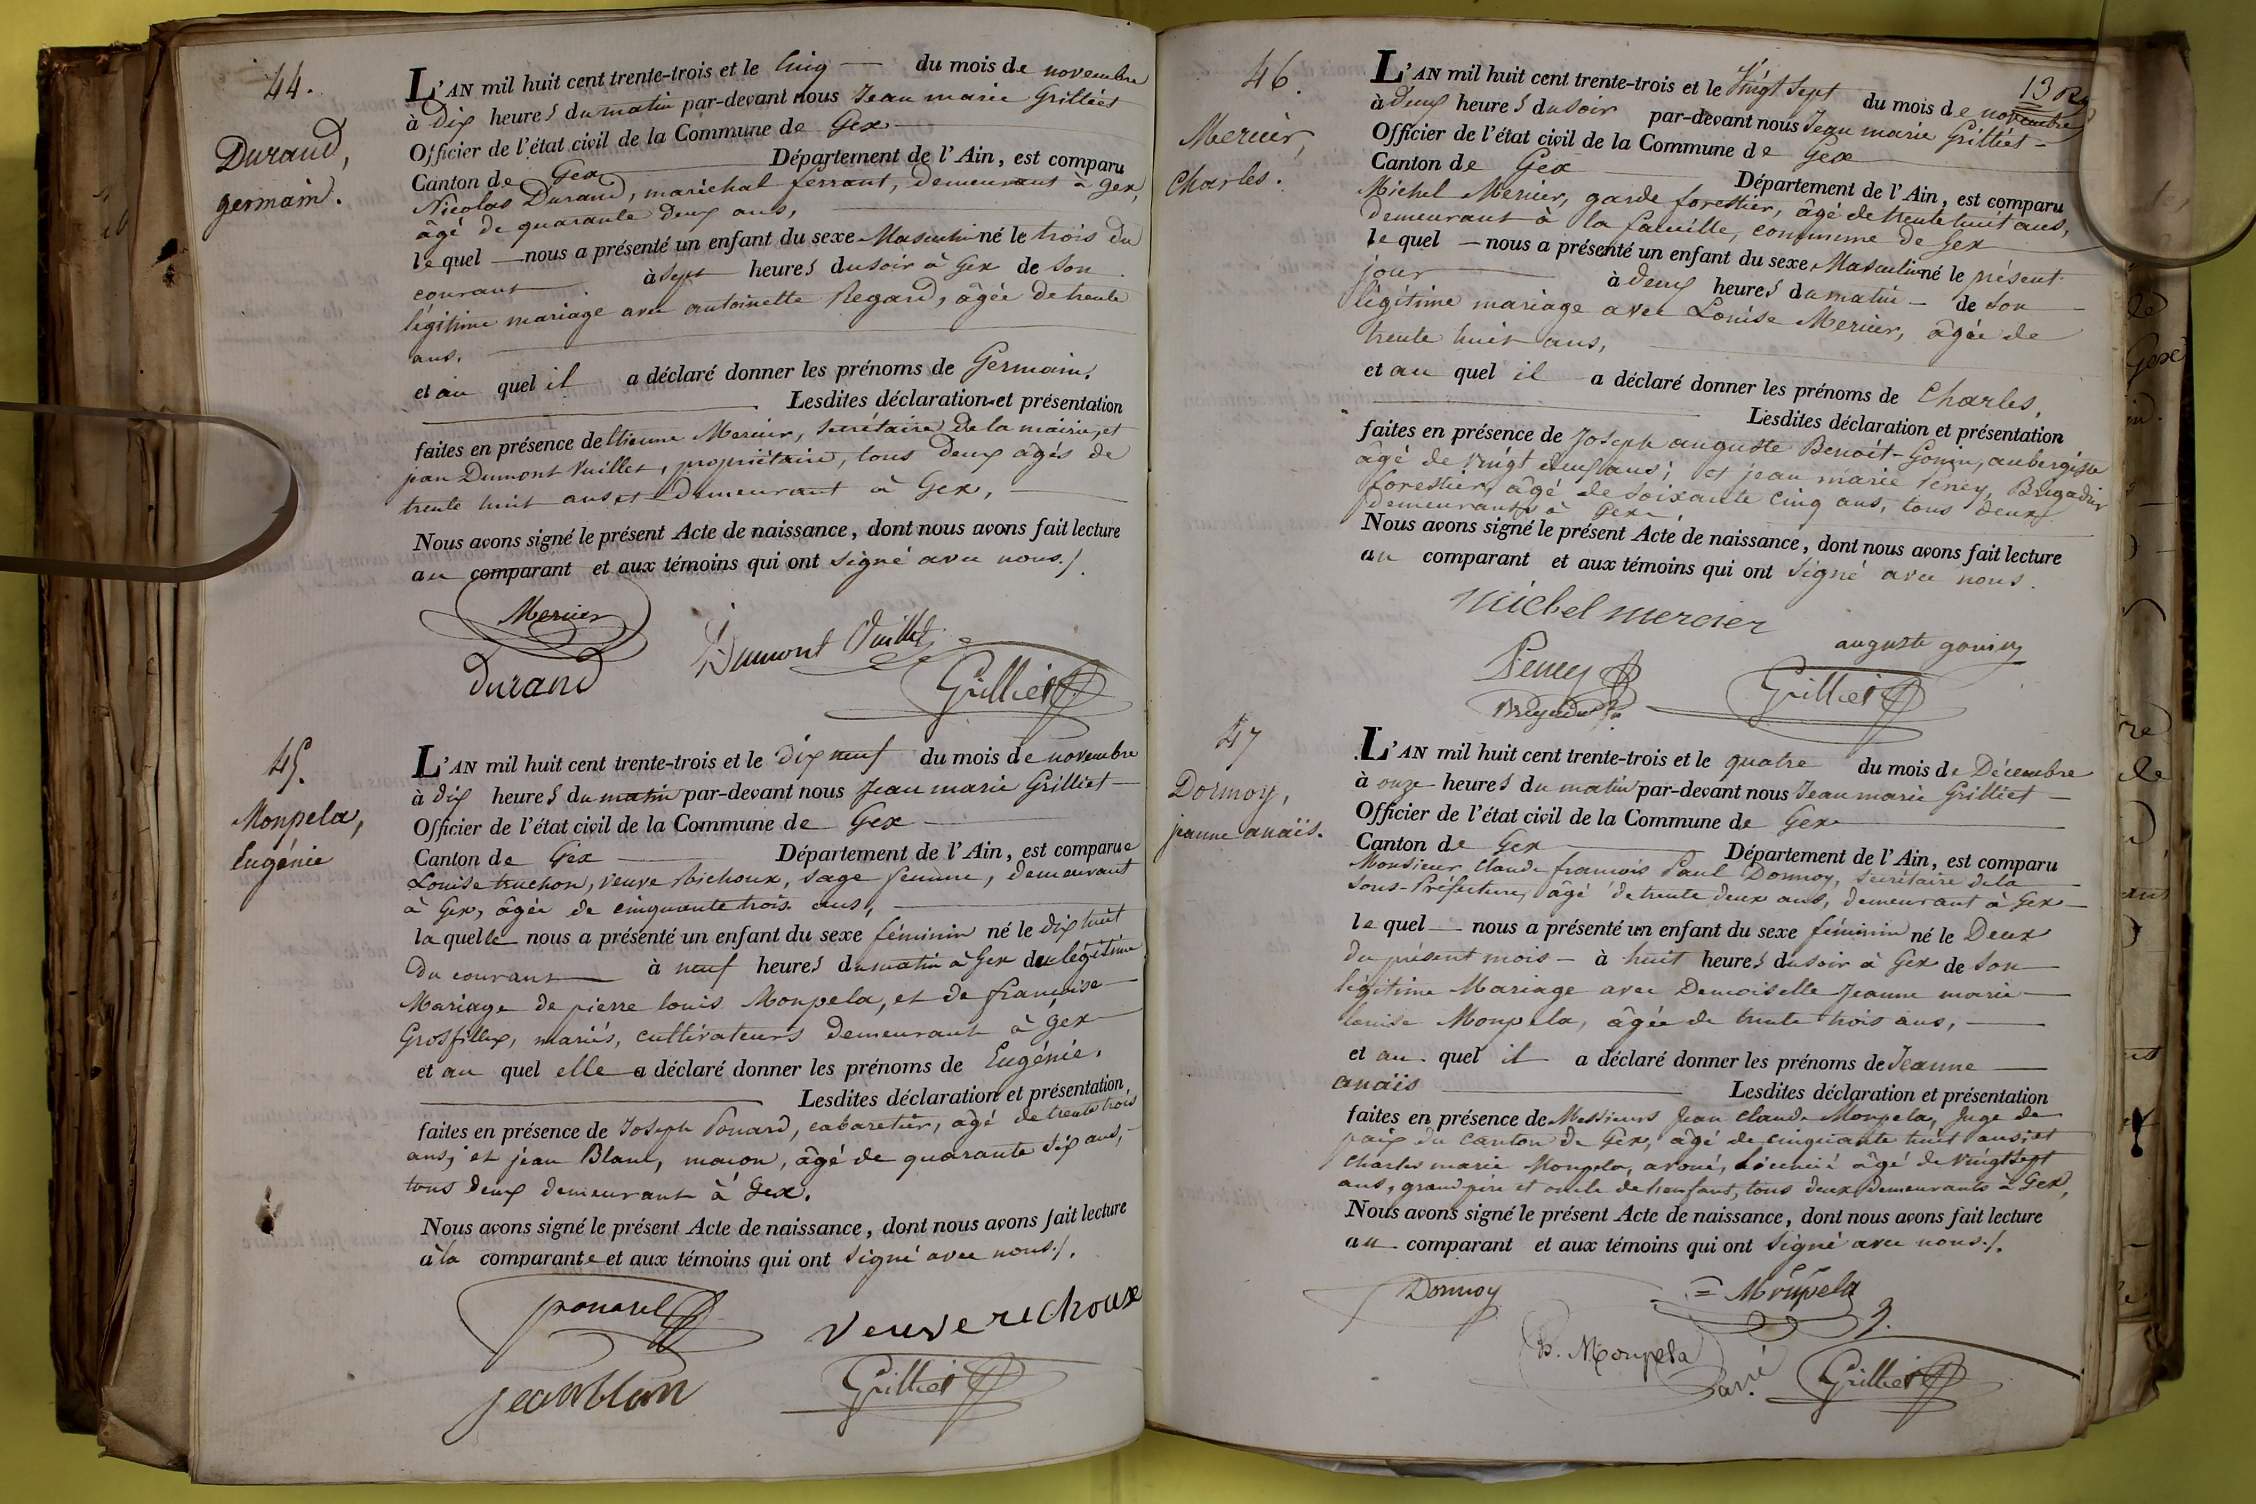 44.
Durand,
germain.
L'AN mil huit cent trente-trois et le Cinq du mois de novembre
à Dix heures du matin par-devant nous Jean marie Grilliet
Officier de l'état civil de la Commune de Gex
Canton de Gex Département de l'Ain, est comparu
Nicolas Durand, maréchal ferrant, demeurant à Gex,
âgé de quarante deux ans,
lequel nous a présenté un enfant du sexe Masculin né le trois du
courant à sept heures du soir à Gex de son
légitime mariage avec antoinette Regard, âgée de trente
ans.
et au quel il a déclaré donner les prénoms de Germain.
Lesdites déclaration et présentation
faites en présence de Etienne Mercier, secrétaire de la mairie, et
jean Dumont Vuillet, propriétaire, tous deux âgés de
trente huit ans et demeurant à Gex,
Nous avons signé le présent Acte de naissance, dont nous avons fait lecture
au comparant et aux témoins qui ont signé avec nous./.
Mercier
Dumont Vuillet
Durand
Grilliet
45.
Monpela,
Eugénie
L'AN mil huit cent trente-trois et le dix neuf du mois de novembre
à dix heures du matin par-devant nous Jean marie Grilliet
Officier de l'état civil de la Commune de Gex
Canton de Gex Département de l'Ain, est comparue
Louise truchon, veuve Richoux, sage femme, demeurant
à Gex, âgée de cinquante trois ans,
laquelle nous a présenté un enfant du sexe féminin né le dix huit
du courant à neuf heures du matin à Gex du légitime
Mariage de pierre louis Monpela, et de françoise
Grosfilley, mariés, cultivateurs demeurant à Gex
et au quel elle a déclaré donner les prénoms de Eugénie.
Lesdites déclaration et présentation
faites en présence de Joseph Ponard, cabaretier, âgé de trente trois
ans, et jean Blanc, maçon, âgé de quarante dix ans,
tous deux demeurant à Gex.
Nous avons signé le présent Acte de naissance, dont nous avons fait lecture
à la comparante et aux témoins qui ont signé avec nous./.
ponard
veuve richoux
jean blan
Grilliet
13
46.
Mercier,
Charles.
L'AN mil huit cent trente-trois et le Vingt Sept du mois de novembre
à deux heures du soir par-devant nous Jean marie Grilliet
Officier de l'état civil de la Commune de Gex
Canton de Gex Département de l'Ain, est comparu
Michel Mercier, garde forestier, âgé de trente huit ans,
demeurant à la faucille, commune de Gex
lequel nous a présenté un enfant du sexe Masculin né le présent
jour à deux heures du matin de son
légitime mariage avec Louise Mercier, âgée de
trente huit ans,
et au quel il a déclaré donner les prénoms de Charles.
Lesdites déclaration et présentation
faites en présence de Joseph auguste Benoit-Gonin, aubergiste
âgé de vingt deux ans; et jean marie Peney, Brigadier
forestier, âgé de soixante cinq ans, tous deux
demeurants à Gex
Nous avons signé le présent Acte de naissance, dont nous avons fait lecture
au comparant et aux témoins qui ont signé avec nous.
michel mercier
auguste gonin
Peney
Grilliet
47
Dormoy,
jeanne anaïs.
L'AN mil huit cent trente-trois et le quatre du mois de Décembre
à onze heures du matin par-devant nous Jean marie Grilliet
Officier de l'état civil de la Commune de Gex
Canton de Gex Département de l'Ain, est comparu
Monsieur Claude françois Paul Dormoy, secrétaire de la
Sous-Préfecture, âgé de trente deux ans, demeurant à Gex
lequel nous a présenté un enfant du sexe féminin né le Deux
du présent mois à huit heures du soir à Gex de son
légitime Mariage avec Demoiselle Jeanne marie
louise Monpela, âgée de trente trois ans,
et au quel il a déclaré donner les prénoms de Jeanne
anaïs Lesdites déclaration et présentation
faites en présence de Messieurs Jean Claude Monpela, Juge de
paix du canton de Gex, âgé de cinquante huit ans, et
Charles marie Monpela, avoué, licencié âgé de vingt sept
ans, grand père et oncle de l'enfant, tous deux demeurants à Gex,
Nous avons signé le présent Acte de naissance, dont nous avons fait lecture
au comparant et aux témoins qui ont signé avec nous./.
Dormoy
Monpela
Monpela
Grilliet